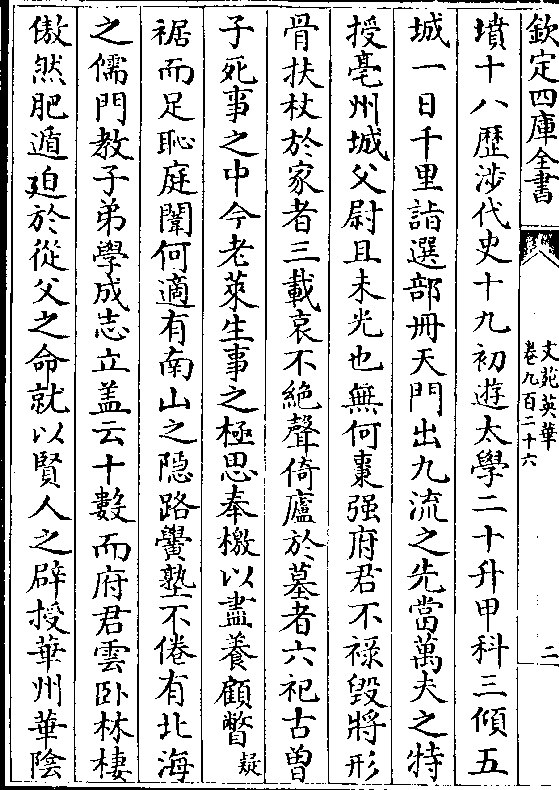 欽定四庫全書
文苑英華
卷九百二十六
二
墳十八歴涉代史十九初遊太學二十升甲科三傾五
城一日千里詣選部册天門出九流之先當萬夫之特
授亳州城父尉且未光也無何棗强府君不禄毁將形
骨扶杖於家者三載哀不絶聲倚廬於墓者六祀古曽
子死事之中今老萊生事之極思奉檄以盡養顧瞥疑
裾而足恥庭闈何適有南山之隠路黌塾不倦有北海
之儒門教子弟學成志立盖云十數而府君雲卧林棲
傲然肥遁廹於從父之命就以賢人之辟授華州華陰